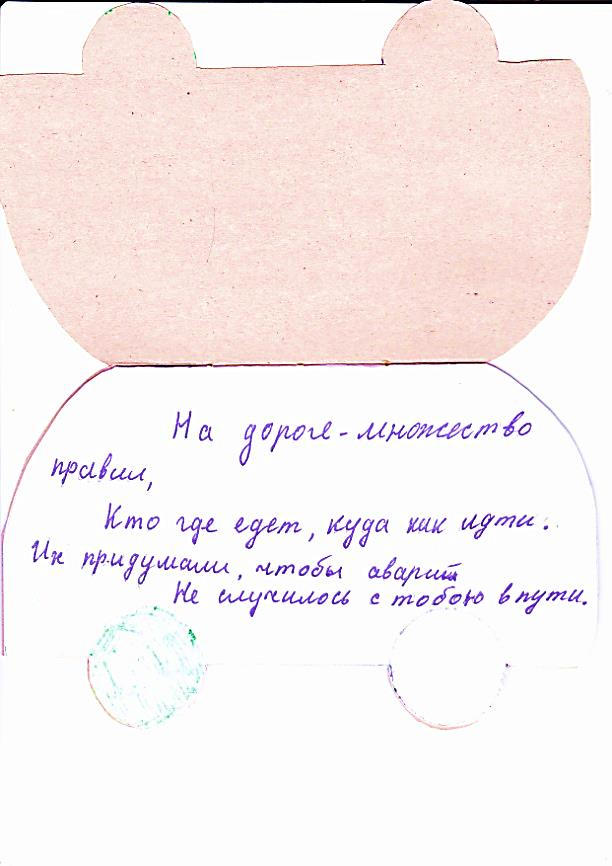 На дороге - множество
правил,
Кто где едет, куда как идти.
Их придумали, чтобы аварий
Не случилось с тобою в пути.